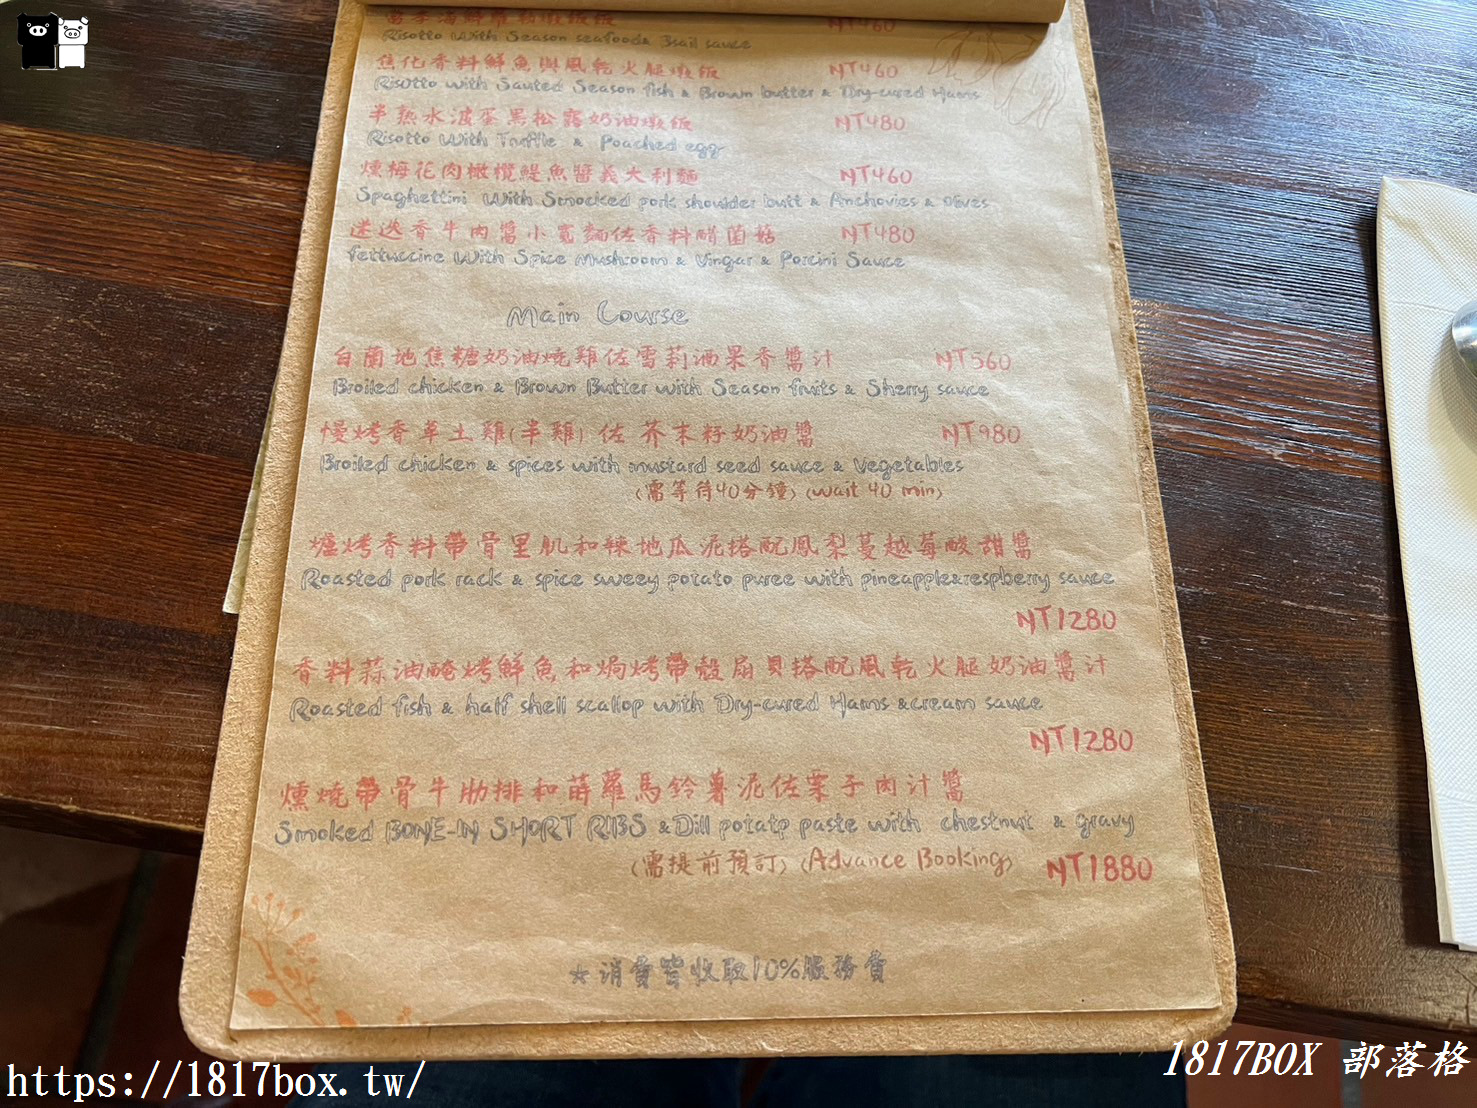 當季海鮮羅勒燉飯飯 NT460
Risotto With Season seafoods Basil sauce
焦化香料鮮魚與風乾火腿燉飯 NT460
Risotto with Sauted Season fish & Brown butter & Dry-cured Hams
半熟水波蛋黑松露奶油燉飯 NT480
Risotto With Truffle & Poached egg
燻梅花肉橄欖鯷魚醬義大利麵 NT460
Spaghettini With Smocked pork shoulder butt & Anchovies & Olives
迷迭香牛肉醬小寬麵佐香料醋菌菇 NT480
Fettuccine With Spice Mushroom & Vingar & Porcini Sauce
Main Course
白蘭地焦糖奶油燒雞佐雪莉酒果香醬汁 NT560
Broiled chicken & Brown Butter with Season fruits & Sherry sauce
慢烤香草土雞(半雞)佐芥末籽奶油醬 NT980
Broiled chicken & spices with mustard seed sauce & Vegetables
(需等待40分鐘)(wait 40 min)
爐烤香料帶骨里肌和辣地瓜泥搭配鳳梨蔓越莓酸甜醬
Roasted pork rack & spice sweey potato puree with pineapple&respberry sauce
NT1280
香料蒜油醃烤鮮魚和焗烤帶殼扇貝搭配風乾火腿奶油醬汁
Roasted fish & half shell scallop with Dry-cured Hams &cream sauce
NT1280
燻燒帶骨牛肋排和蒔蘿馬鈴薯泥佐栗子肉汁醬
Smoked BONE-IN SHORT RIBS & Dill potatp paste with chestnut & gravy
(需提前預訂)(Advance Booking) NT1880
★消費皆收取10%服務費
https://1817box.tw/
1817BOX 部落格